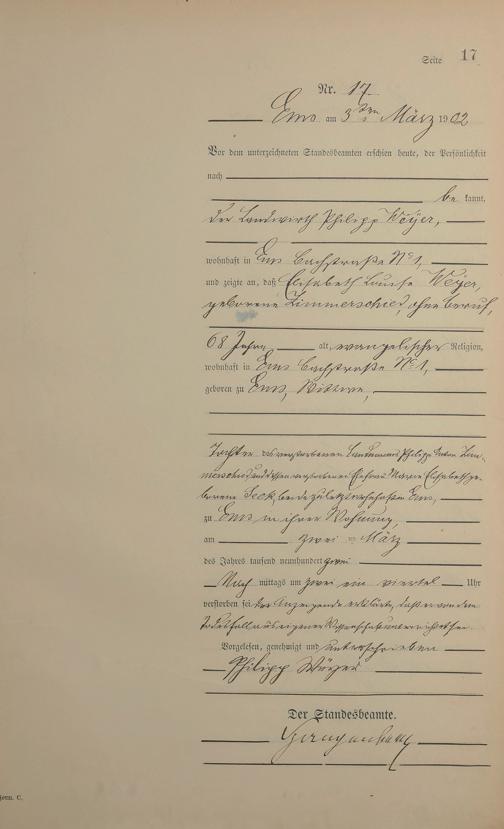 Seite 17
Nr. 17.
Ems am 3ten März 1902
Vor dem unterzeichneten Standesbeamten erschien heute, der Persönlichkeit
nach
be kannt,
der Landwirth Philipp Weyer,
wohnhaft in Ems Bachstraße No 1,
und zeigte an, daß Elisabeth Louise Weyer,
geborene Zimmerschied, ohne Beruf,
68 Jahre alt, evangelischer Religion,
wohnhaft in Ems Bachstraße No 1,
geboren zu Ems, Wittwe,
Tochter des verstorbenen Landmanns Philipp Anton Zim-
merschied und dessen verstorbenen Ehefrau Marie Elisabeth ge-
borene Seck, beide zuletzt wohnhaft in Ems,
zu Ems in ihrer Wohnung,
am zwei ten März
des Jahres tausend neunhundert zwei
Nach mittags um zwei ein viertel Uhr
verstorben sei. Der Anzeigende erklärte, daß er von dem
Todesfall aus eigener Wissenschaft unterrichtet sei.
Vorgelesen, genehmigt und unterschrieben
Philipp Weyer
Der Standesbeamte.